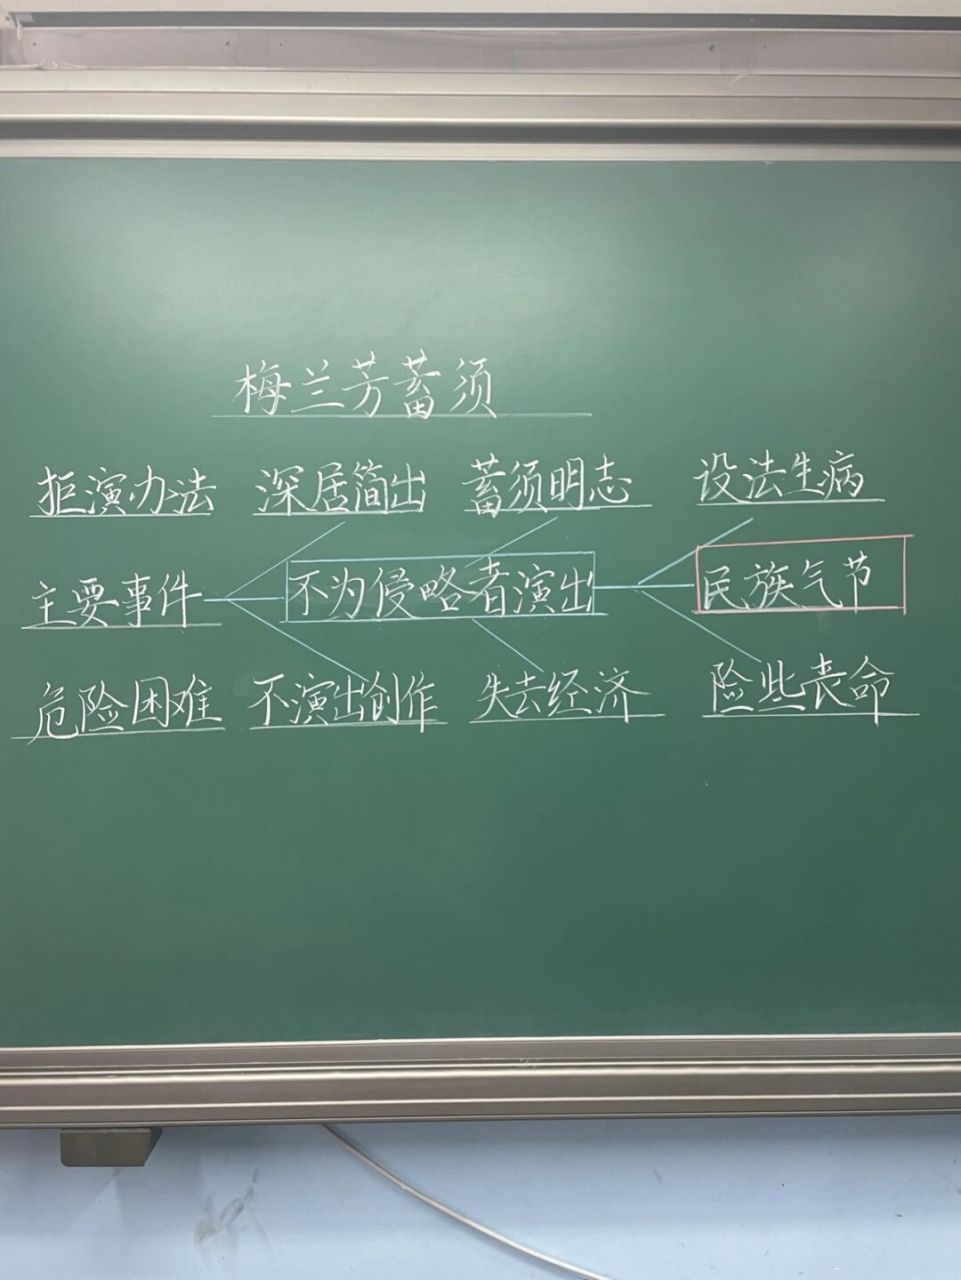 梅兰芳蓄须
拒演办法 深居简出 蓄须明志 设法生病
主要事件 不为侵略者演出 民族气节
危险困难 不演出创作 失去经济 险些丧命